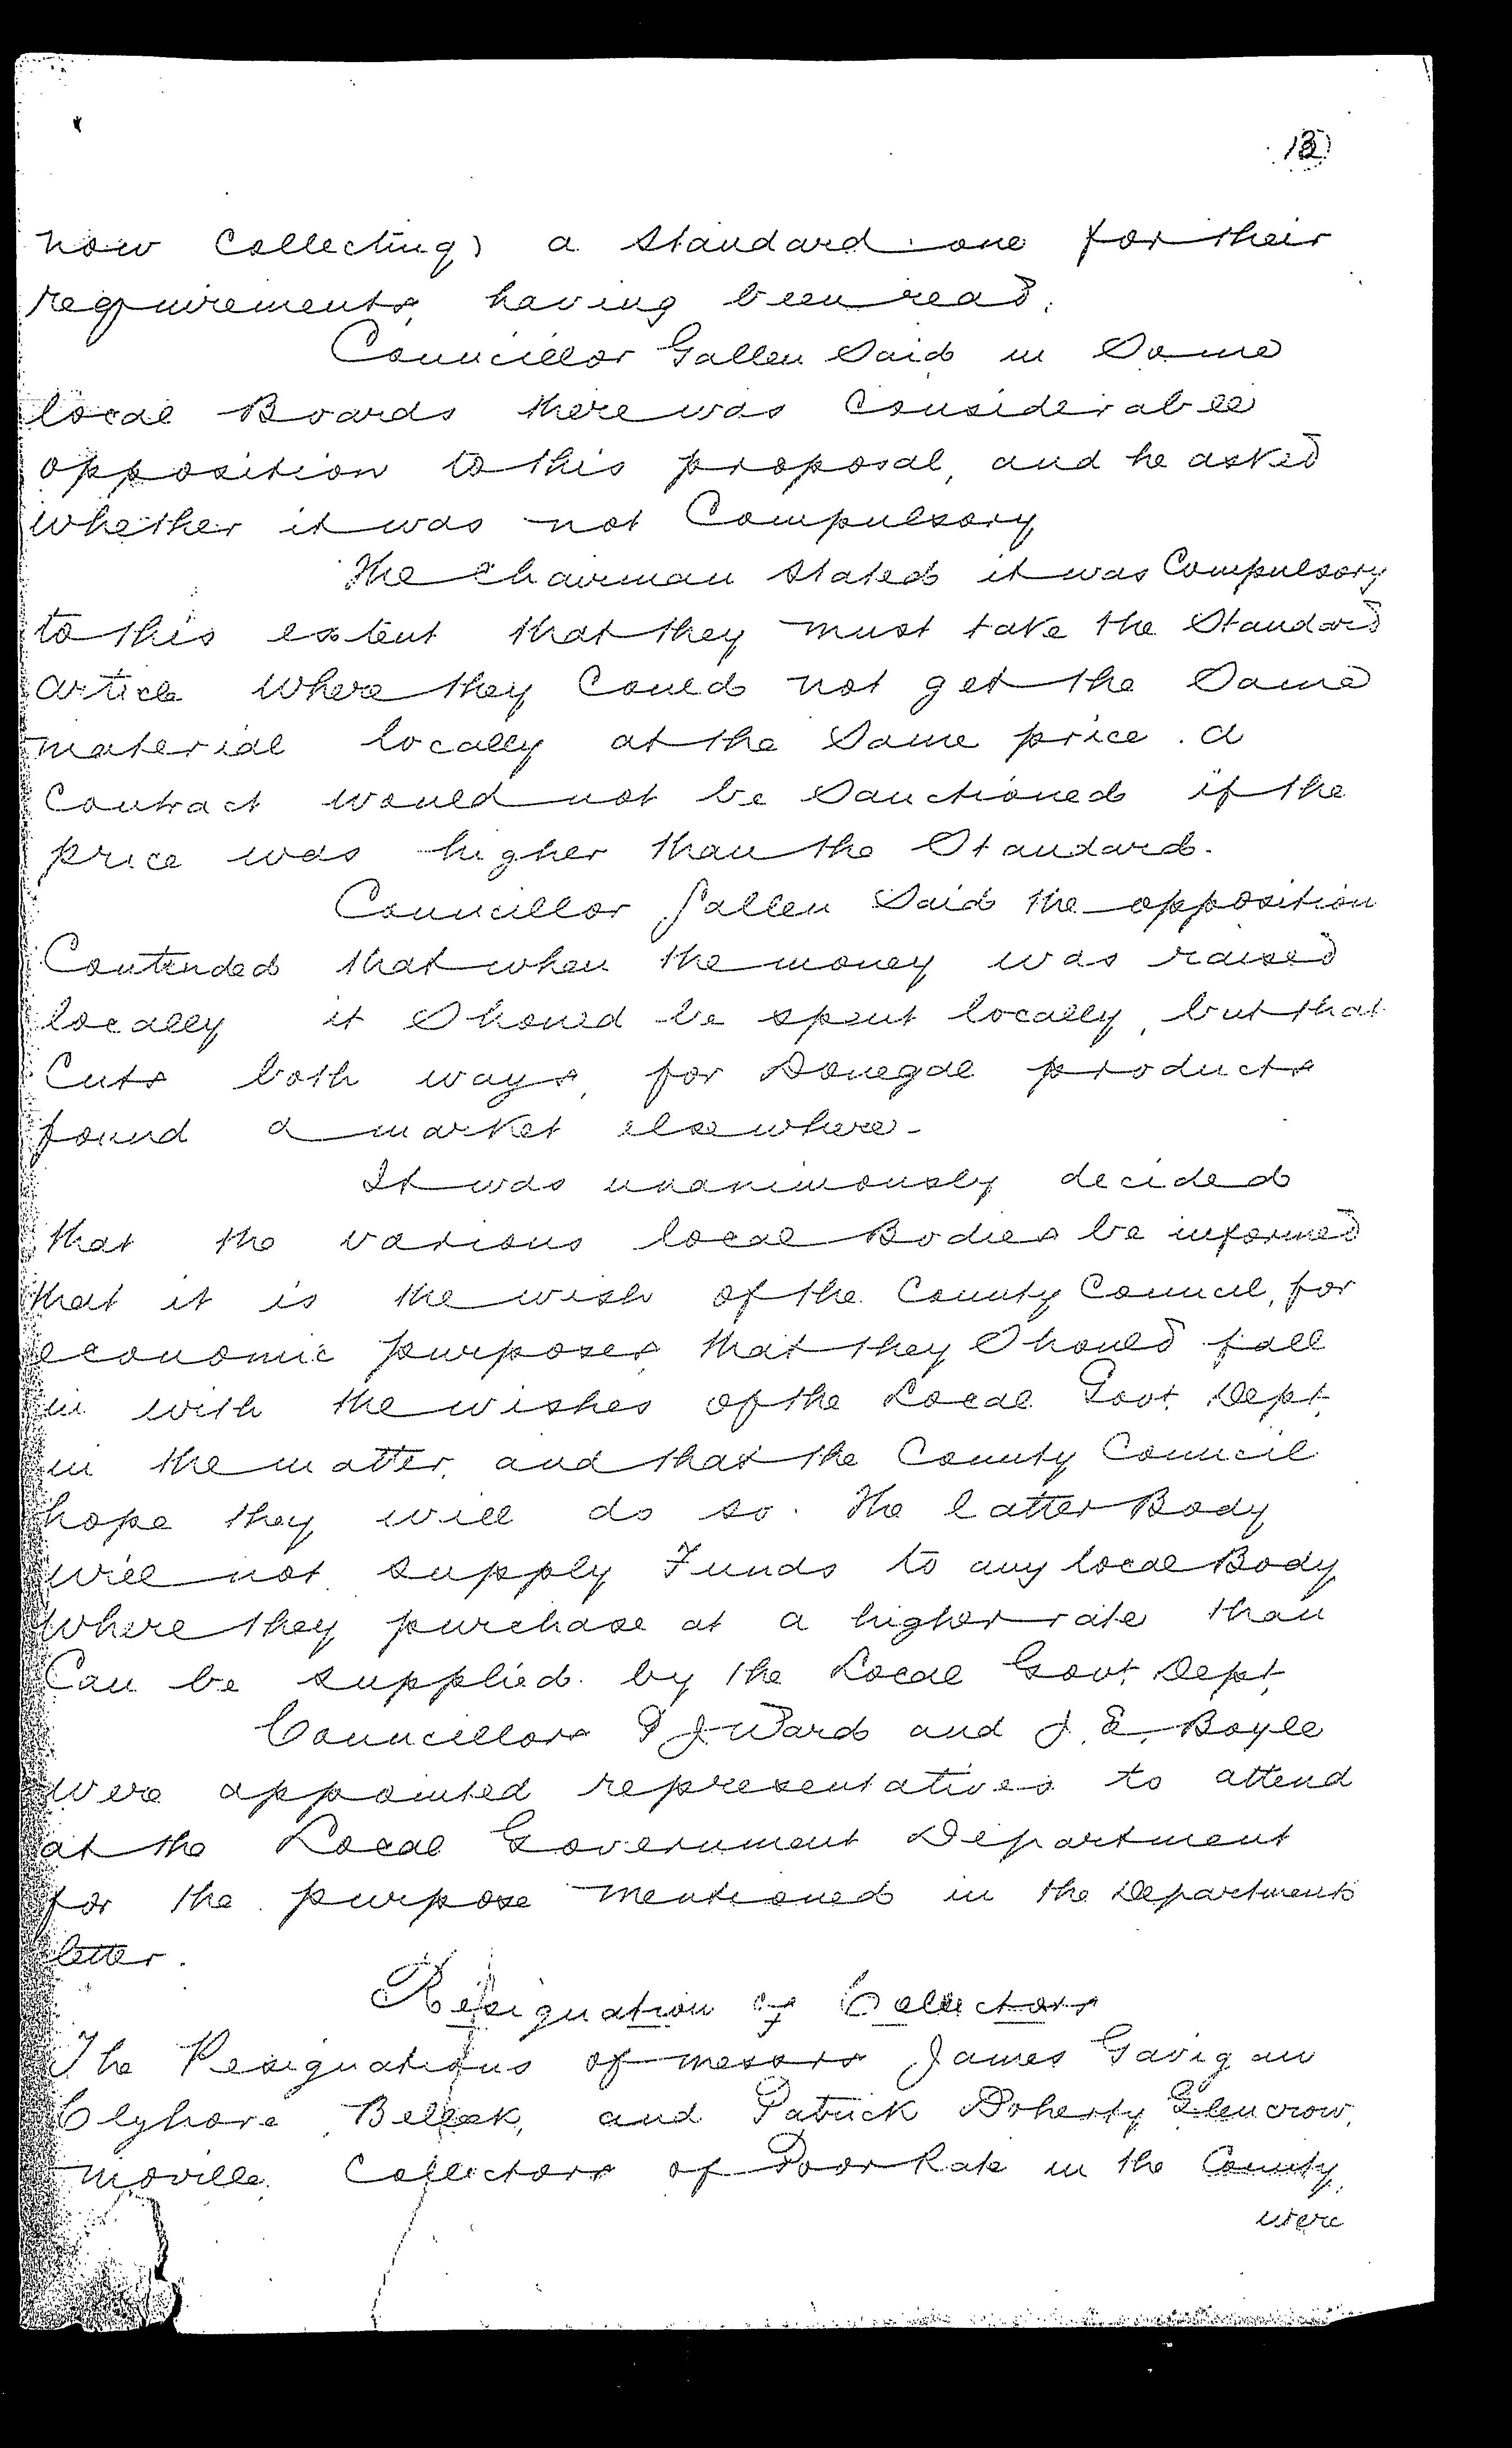 now Collecting) a standard one for their
requirements, having been read.
Councillor Gallen Said in Some
local Boards there was Considerable
opposition to this proposal, and he asked
whether it was not Compulsory
The Chairman stated it was Compulsory
to this extent that they must take the Standard
article where they Could not get the Same
material locally at the Same price. A
Contract would not be Sanctioned if the
price was higher than the Standard.
Councillor Gallen Said the opposition
Contended that when the money was raised
locally it Should be spent locally, but that
Cuts both ways, for Donegal products
found a market elsewhere.
It was unanimously decided
that the various local Bodies be informed
that it is the wish of the County Council, for
economic purposes, that they Should fall
in with the wishes of the Local Govt. Dept.
in the matter, and that the County Council
hope they will do so. The latter Body
will not supply Funds to any local Body
where they purchase at a higher rate than
Can be supplied by the Local Govt. Dept.
Councillors P J Ward and J. E. Boyle
were appointed representatives to attend
at the Local Government Department
for the purpose mentioned in the Departments
letter.
Resignation of Collectors
The Resignations of messrs James Gavigan
Clyhore Belleek, and Patrick Doherty Glencrow,
moville, Collectors of Poor Rate in the County,
were